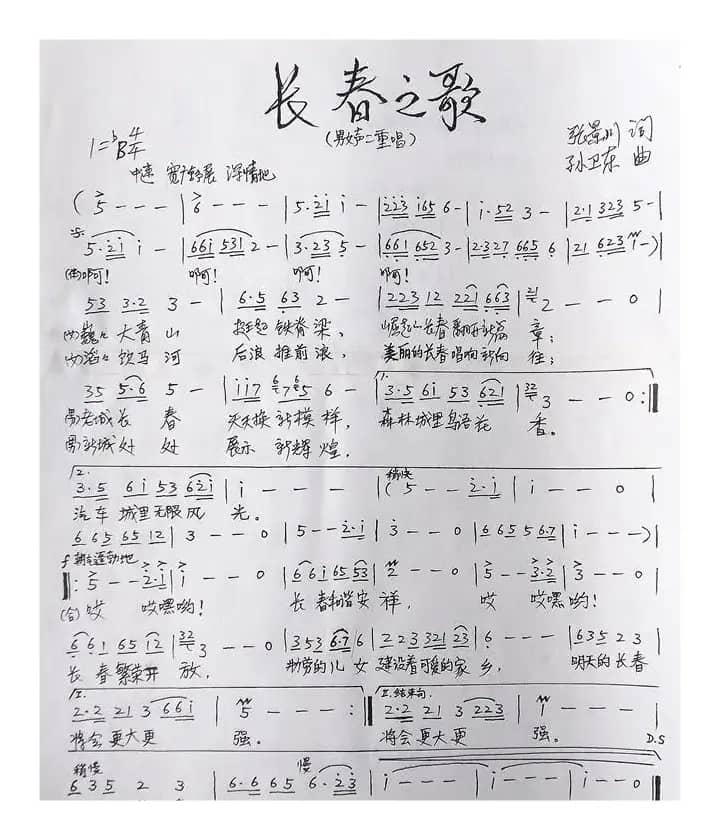 长春之歌
(男女声二重唱)
张景川 词
孙卫东 曲
1=♭B 4/4
中速 宽广舒展 深情地
( 5 - - - | 6 - - - | 5·2i i - | 223 i65 6 - | i·52 3 - | 2·1 323 5 - |
5·2i i - | 66i 531 2 - | 3·23 5 - | 661 652 3 - | 2·327 665 6 | 21 623 1 - ) |
(女)啊! 啊! 啊! 啊!
53 3·2 3 - | 6·5 63 2 - | 223 12 221 663 | 2 - - 0 |
(女)巍巍大青山 挺起铁脊梁, 崛起的长春翻开新篇章;
(女)滔滔饮马河 后浪推前浪, 美丽的长春唱响新向往;
35 5·6 5 - | ii7 675 6 - | 1. 3·5 6i 53 621 | 3 - - 0 :|
(男)老城长春 天天换新模样, 森林城里鸟语花香。
(男)新城处处 展示新辉煌,
2. 3·5 6i 53 62i | i - - - | 稍快 (5 - - 2·i | i - - 0 |
汽车城里无限风光。
66 65 65 12 | 3 - - 0 | 5 - - 2·i | 3 - - 0 | 66 55 6·7 | i - - - ) |
f
|: 5 - - 2·i | i - - 0 | 66i 65 53 | 2 - - 0 | 5 - - 3·2 | 3 - - 0 |
(合)哎 哎嘿哟! 长春和谐安祥, 哎 哎嘿哟!
661 65 12 | 3 - - 0 | 353 6·7 6 | 223 321 23 | 6 - - - | 635 2 3 |
长春繁荣开放, 勤劳的儿女建设着可爱的家乡, 明天的长春
I. 2·2 21 3 66i | 5 - - - :| II.结束句 2·2 21 3 223 | i - - - |
将会更大更强。 将会更大更强。 D.S
稍慢 慢
635 2 3 | 6·6 65 6·23 | i - - - | i - - - | i - - 0 |